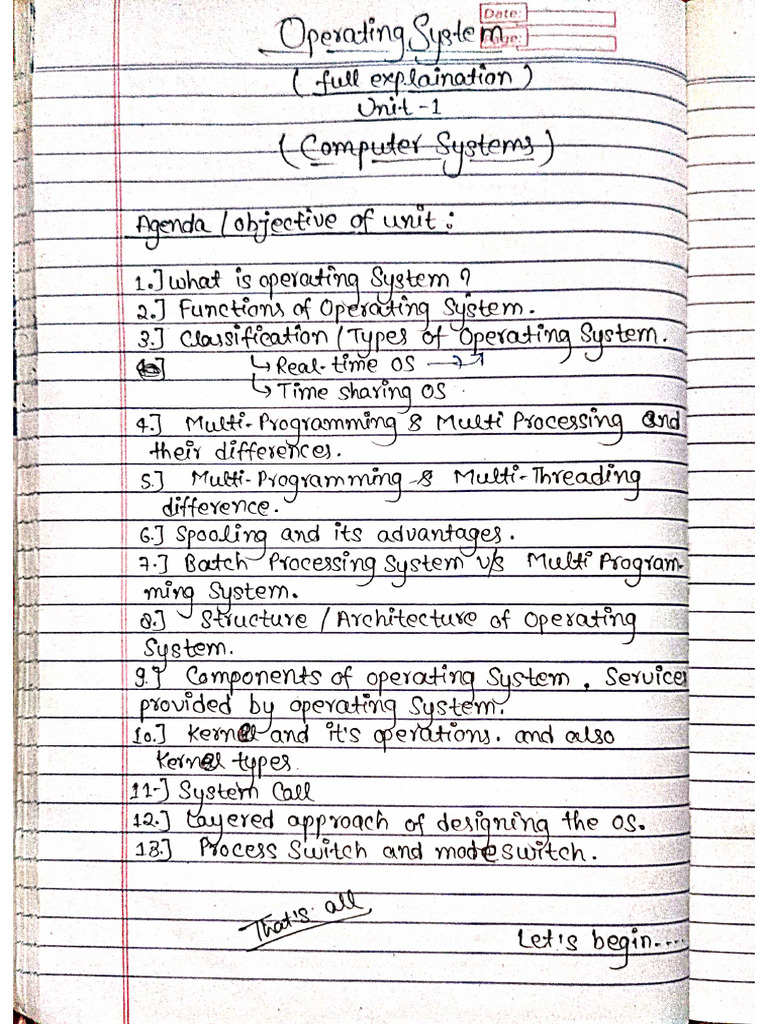 Operating System
Date:
Page:
(full explaination)
Unit-1
(Computer Systems)
Agenda/objective of unit:
1.] What is operating System?
2.] Functions of Operating System.
3.] Classification/Types of Operating System.
↳ Real-time OS →
↳ Time sharing OS
4.] Multi-Programming & Multi Processing and
their differences.
5.] Multi-Programming & Multi-Threading
difference.
6.] Spooling and its advantages.
7.] Batch Processing System v/s Multi Program-
ming System.
8.] Structure / Architecture of Operating
System.
9.] Components of operating System, Services
provided by operating System.
10.] Kernel and it's operations. and also
Kernel types.
11.] System Call
12.] Layered approach of designing the OS.
13.] Process Switch and mode switch.
That's all
Let's begin....